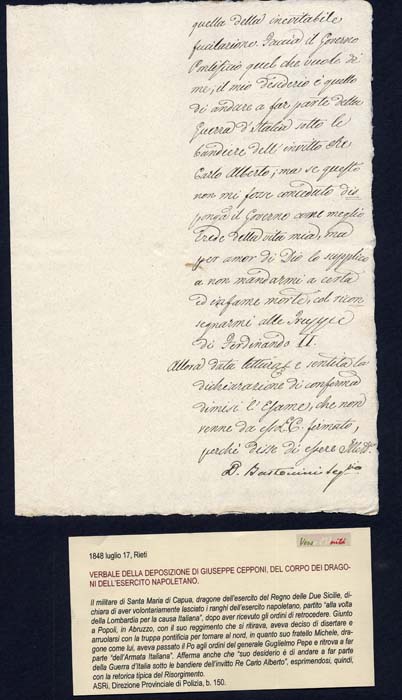 quella della inevitabile
fucilazione. Faccia il Governo
Pontificio quel che vuole di
me, il mio desiderio è quello
di andare a far parte della
Guerra d'Italia sotto le
bandiere dell'invitto Re
Carlo Alberto; ma se questo
non mi fosse conceduto dis
ponga il Governo come meglio
crede della vita mia, ma
per amor di Dio lo supplico
a non mandarmi a certa
ed infame morte, col ricon
segnarmi alle Truppe
di Ferdinando II.
Allora data lettura e sentita la
dichiarazione di conferma
dimisi l'Esame, che non
venne da
firmato,
perché disse di essere
D.
1848 luglio 17, Rieti
VERBALE DELLA DEPOSIZIONE DI GIUSEPPE CEPPONI, DEL CORPO DEI DRAGO-
NI DELL'ESERCITO NAPOLETANO.
Il militare di Santa Maria di Capua, dragone dell'esercito del Regno delle Due Sicilie, di-
chiara di aver volontariamente lasciato i ranghi dell'esercito napoletano, partito "alla volta
della Lombardia per la causa Italiana", dopo aver ricevuto gli ordini di retrocedere. Giunto
a Popoli, in Abruzzo, con il suo reggimento che si ritirava, aveva deciso di disertare e
arruolarsi con la truppa pontificia per tornare al nord, in quanto suo fratello Michele, dra-
gone come lui, aveva passato il Po agli ordini del generale Guglielmo Pepe e ritrova a far
parte "dell'Armata Italiana". Afferma anche che "suo desiderio è di andare a far parte
della Guerra d'Italia sotto le bandiere dell'invitto Re Carlo Alberto", esprimendosi, quindi,
con la retorica tipica del Risorgimento.
ASRi, Direzione Provinciale di Polizia, b. 150.